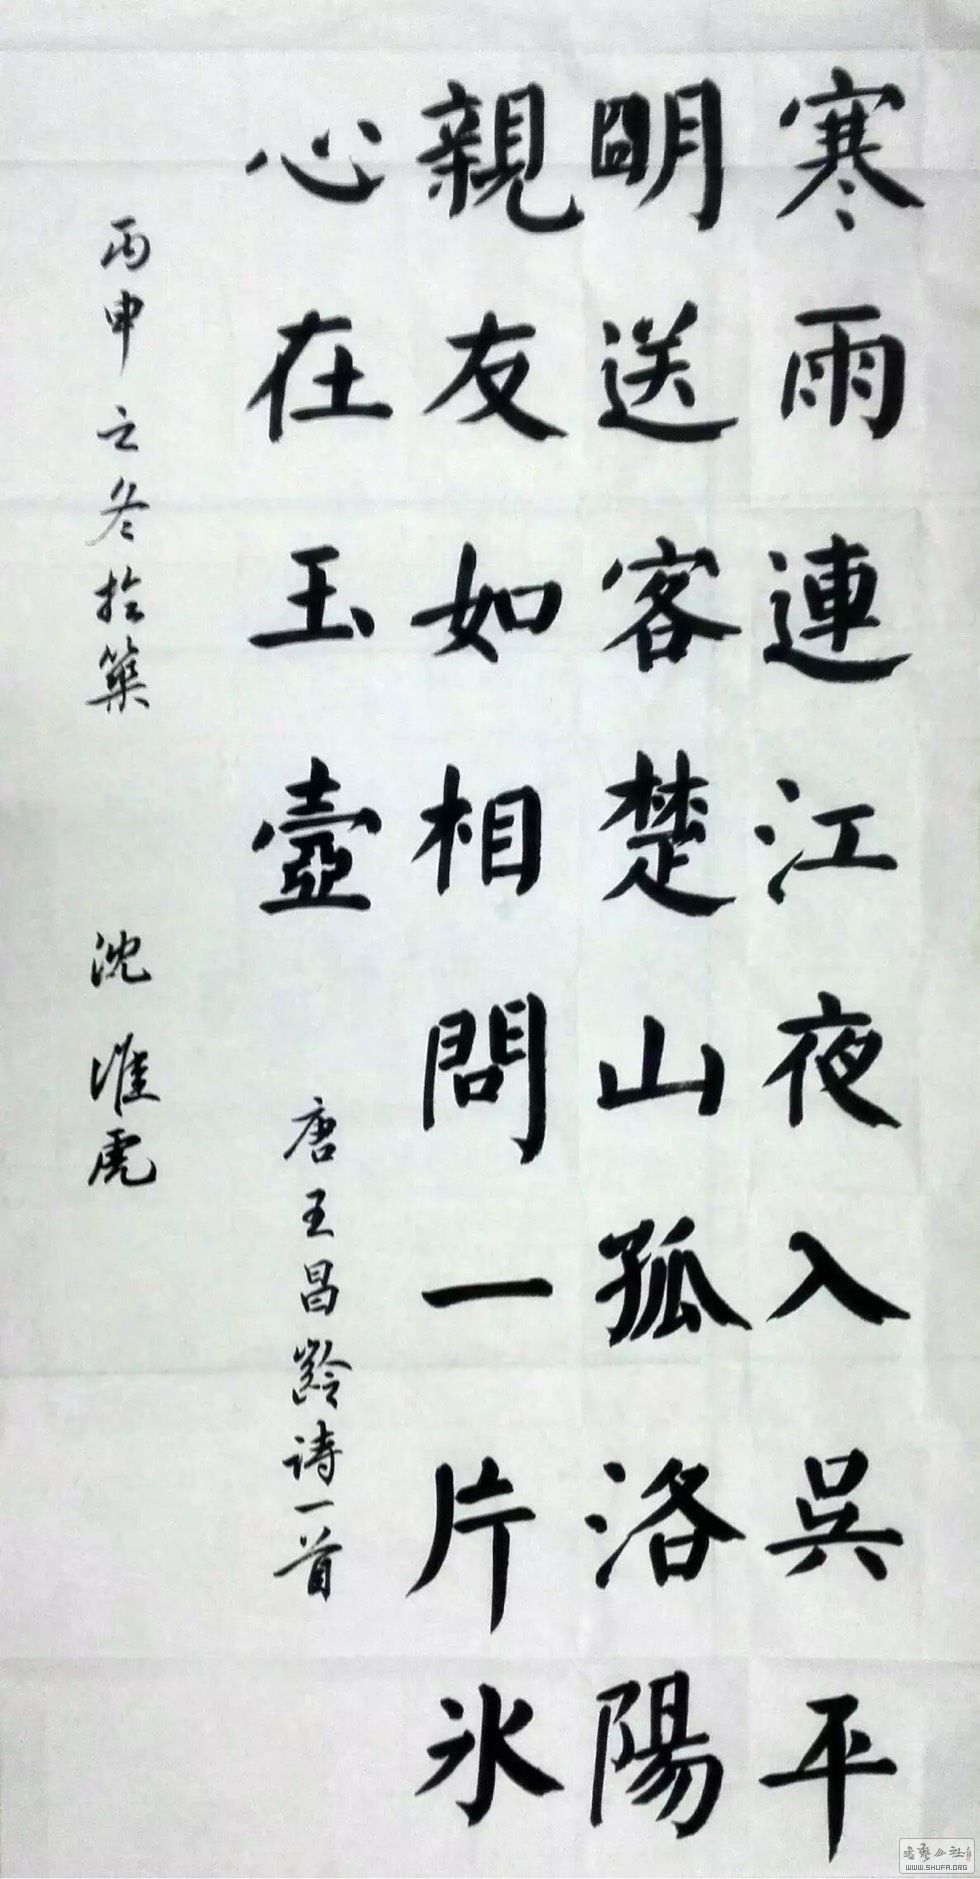 寒雨連江夜入吳平
明送客楚山孤洛陽
親友如相問一片氷
心在玉壺
唐王昌齡诗一首
丙申之冬於築
沈淮虎
WWW.SHUFA.ORG